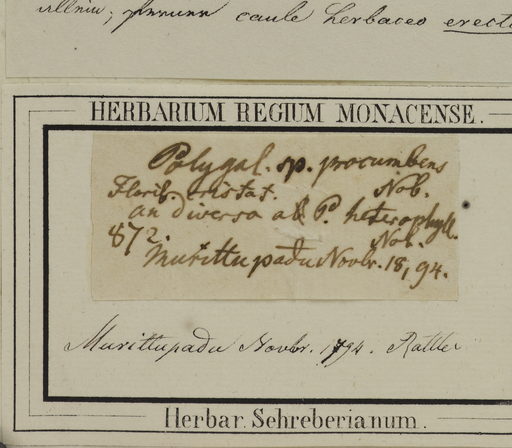 caule herbaceo erecto
HERBARIUM REGIUM MONACENSE.
Polygal. sp. procumbens
Florib. cristat. Nob.
an diversa ab P. heterophyll.
872. Nob.
Murittupadu Novbr. 18, 94.
Murittupadu Novbr. 1794. Rottler
Herbar. Schreberianum.